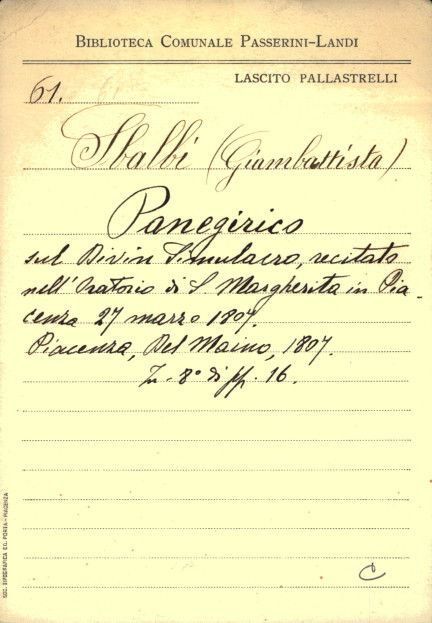 BIBLIOTECA COMUNALE PASSERINI-LANDI
LASCITO PALLASTRELLI
61.
Sbalbi (Giambattista)
Panegirico
sul Divin Simulacro, recitato
nell'Oratorio di S. Margherita in Pia-
cenza 27 marzo 1807.
Piacenza, Del Maino, 1807.
In-8º di pp. 16.
C
SOC. TIPOGRAFICA ED. PORTA-PIACENZA